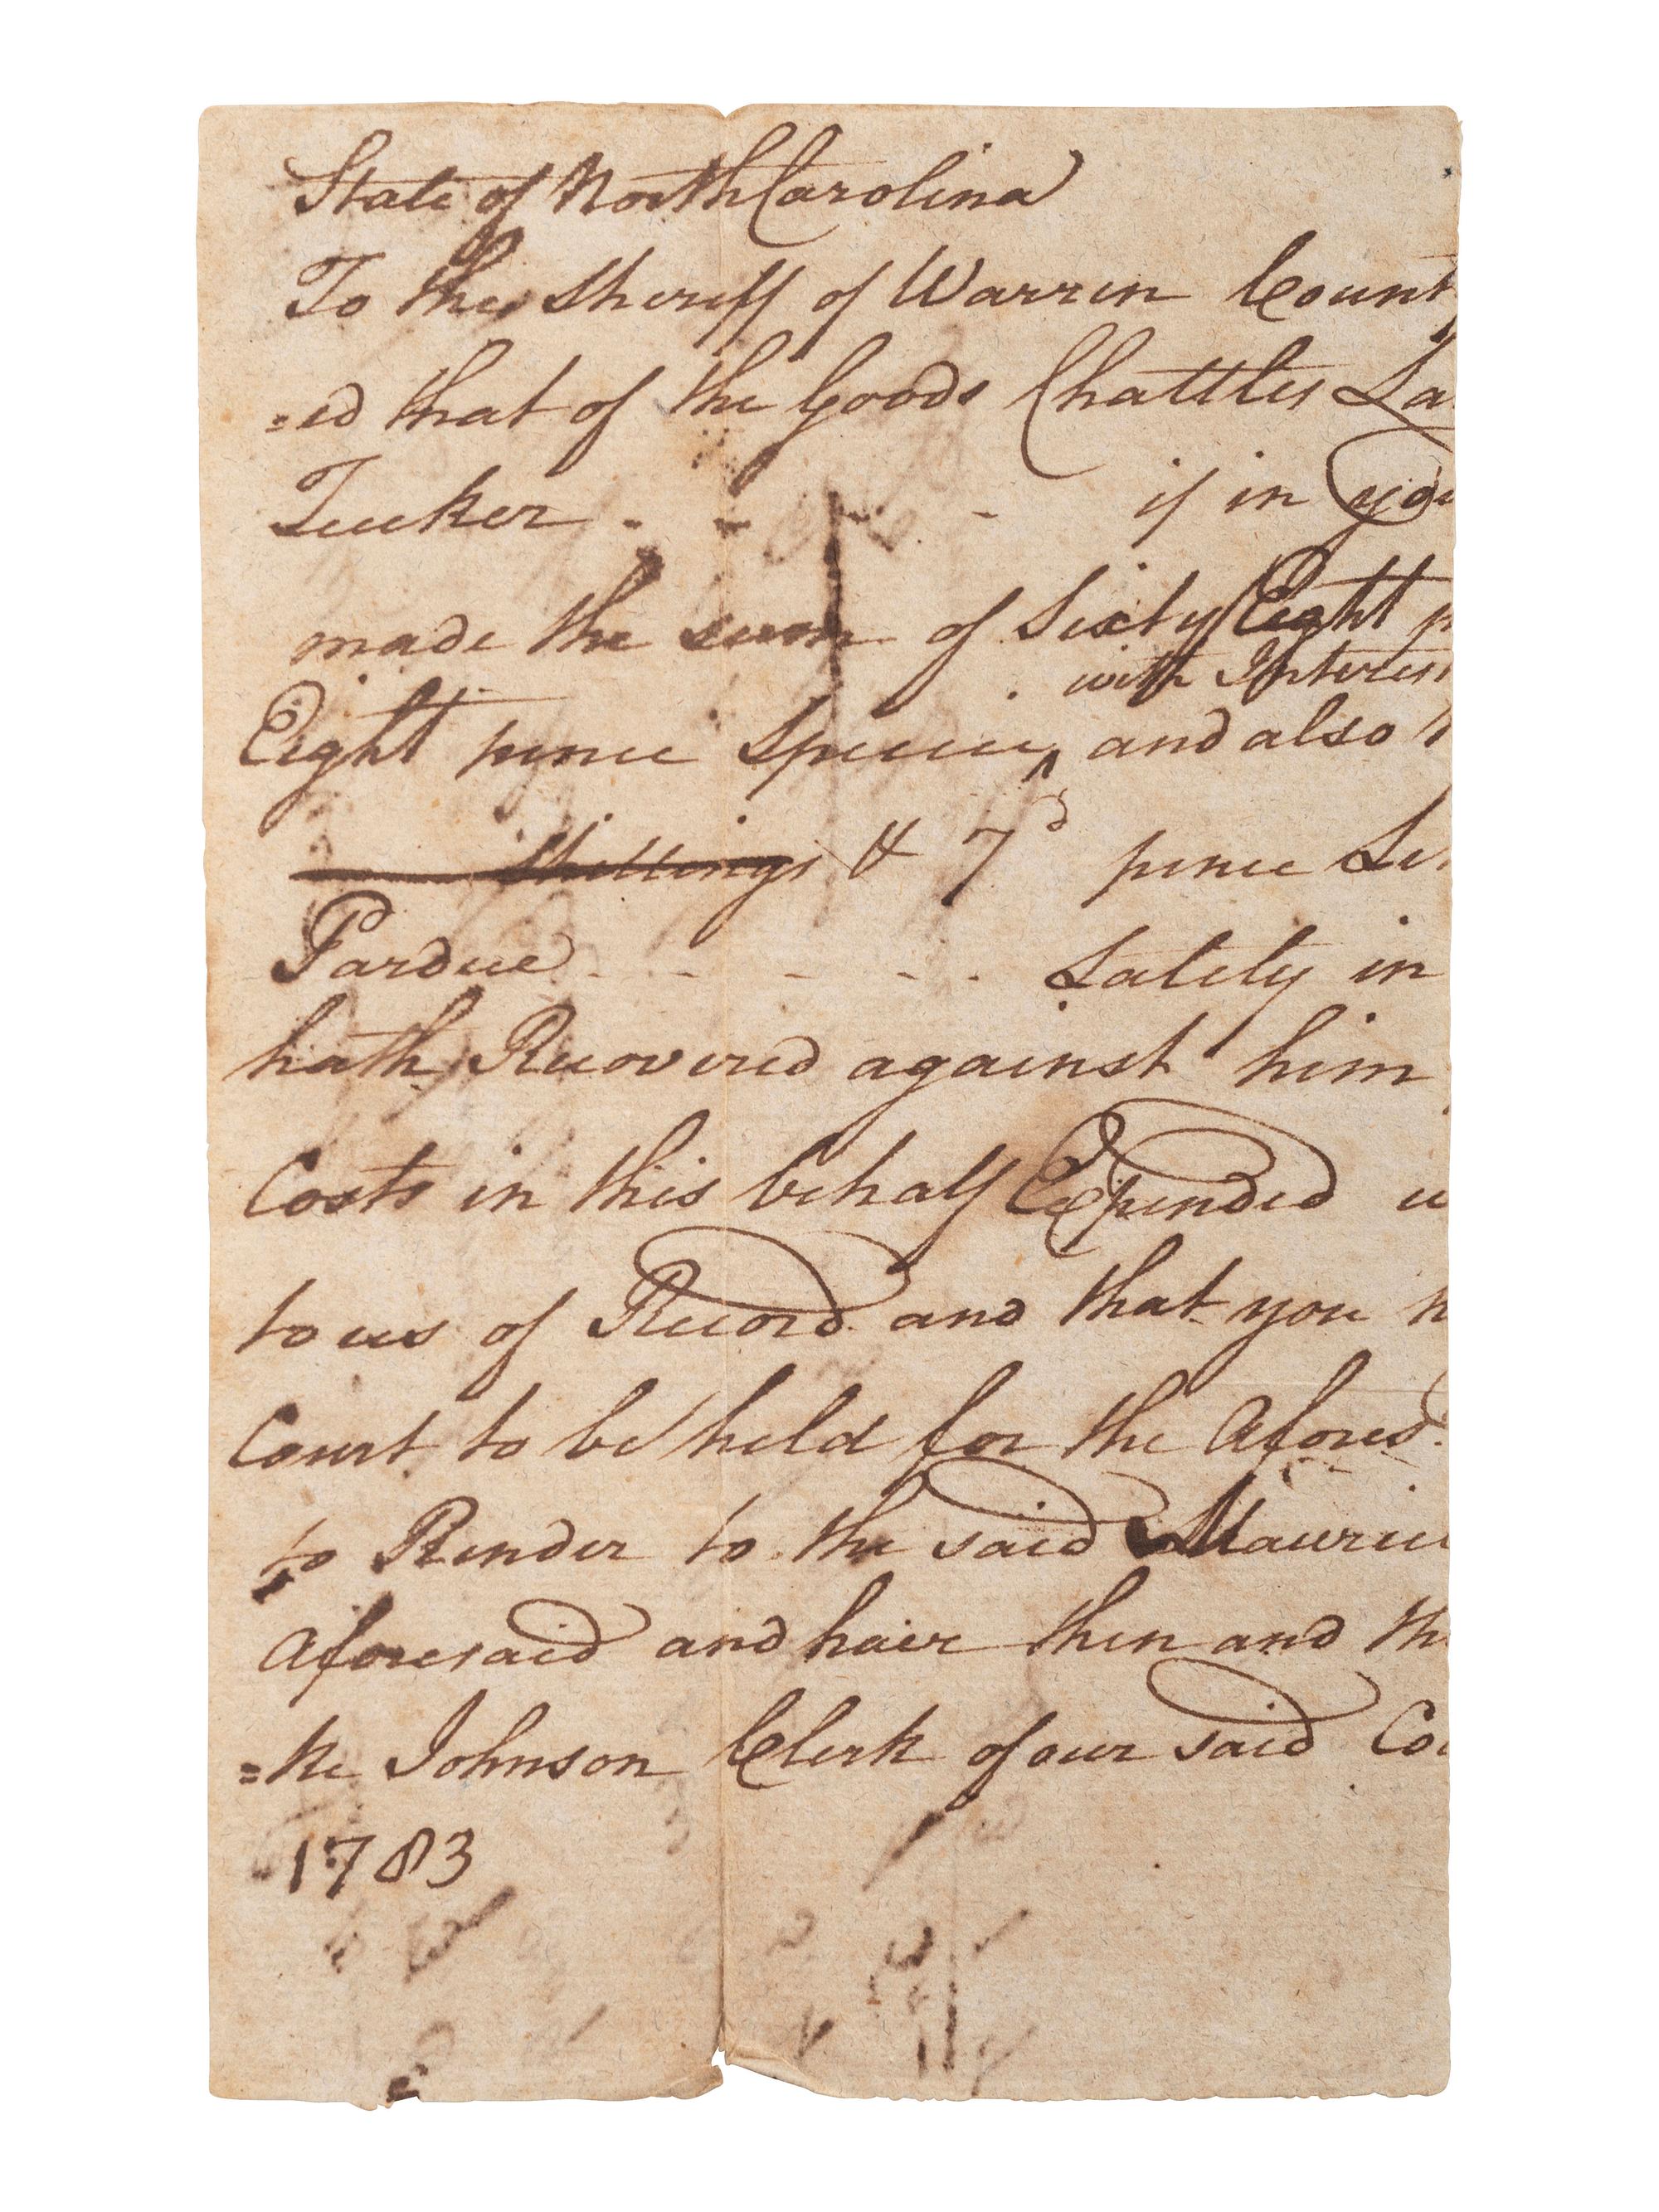 State of North Carolina
To the Sheriff of Warren Count
=ed that of the Goods Chattles La
Tucker - - - - if in you
made the sum of Sixty Eight p
with Interest
Eight pence Specie ^ and also
shillings & 7d pence
Pardue - - - - - Lately in
hath Recovered against him
Costs in this behalf Expended w
to us of Record and that you h
Court to be held for the Aforesd.
to Render to the said Mauric
Aforesaid and have then and th
=ke Johnson Clerk of our said Co
1783